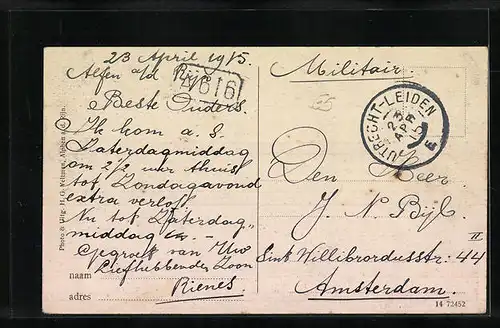 23 April 1915.
Alfen a/d Rijn
Beste Ouders.
Ik kom a. s.
Zaterdagmiddag
om 2½ uur thuis
tot Zondagavond
extra verlof
Nu tot Zaterdag„
middag
Gegroet van Uw
Liefhebbende Zoon
naam
Rienes
adres
Photo & Uitg. H. G. Veltman, Alphen a. d. Rijn.
Militair.
UTRECHT-LEIDEN
23 APR 15
E
Den Heer
J. N. Bijl
Sint Willibrordusstr. 44 II
Amsterdam.
14 72452